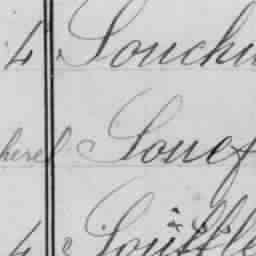 4 Souchu
herel Souef
4 Souffle